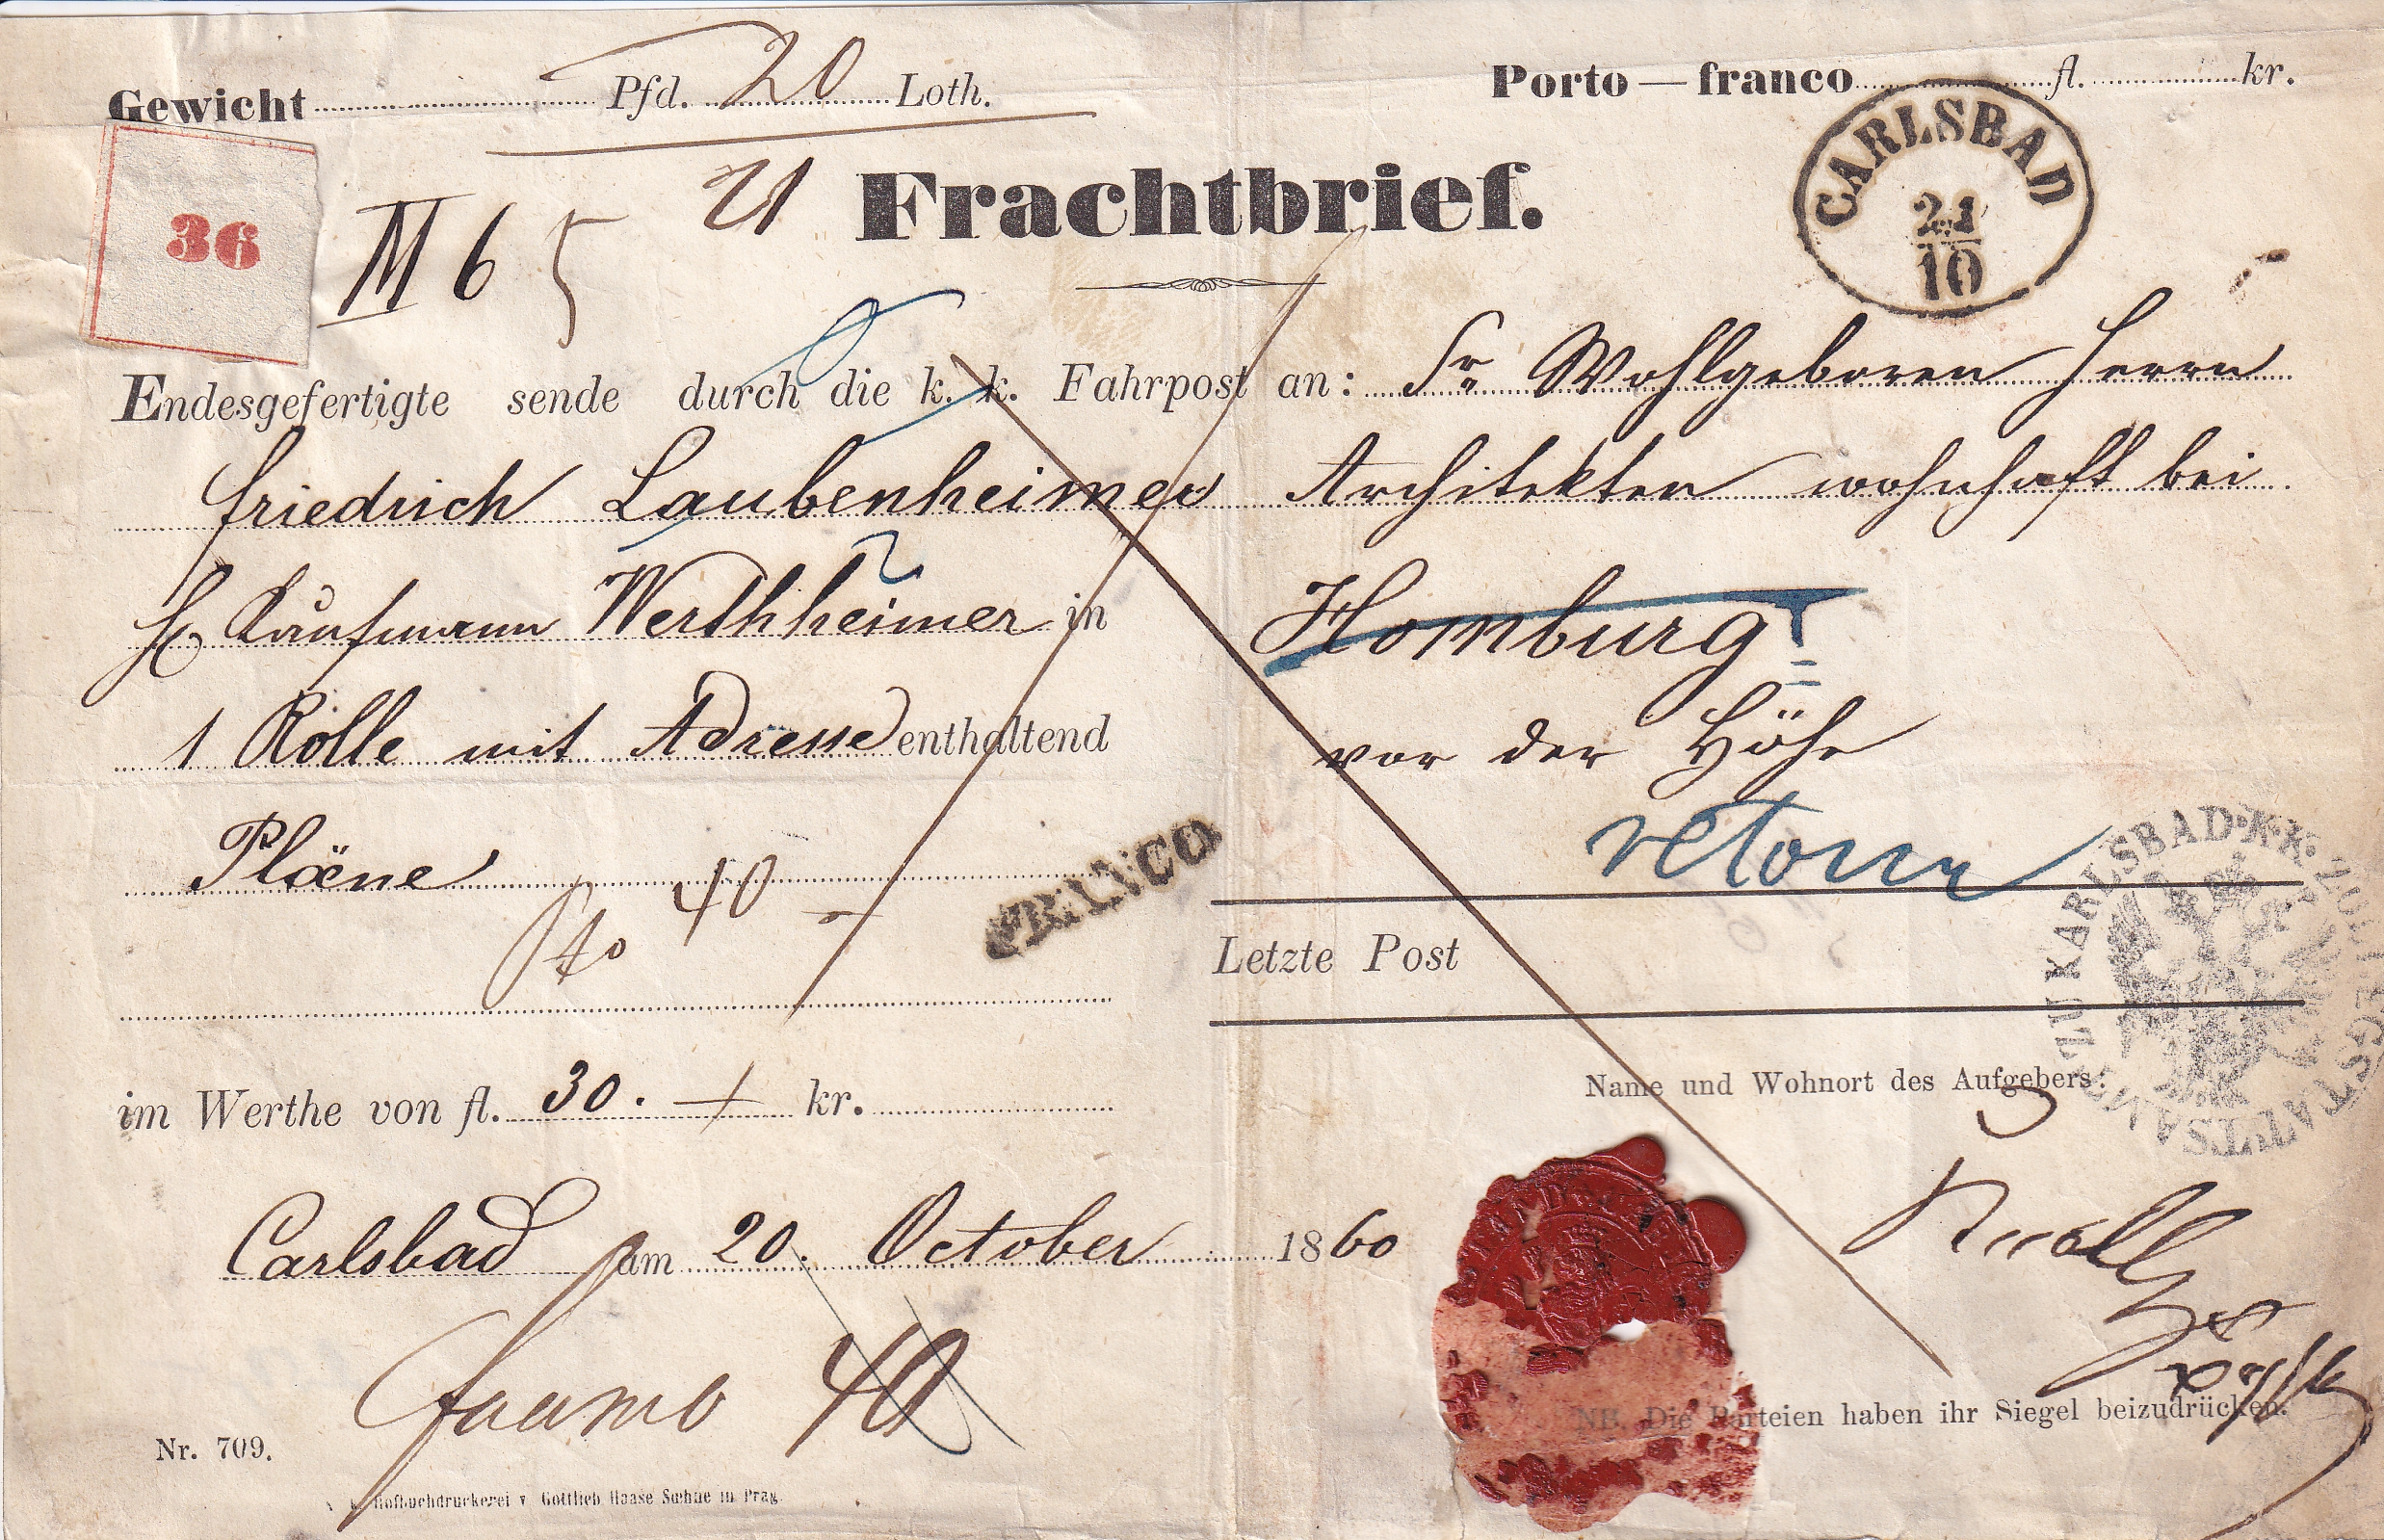 Gewicht Pfd. 20 Loth.
Porto — franco fl. kr.
36
CARLSBAD
21
10
Frachtbrief.
Endesgefertigte sende durch die k. k. Fahrpost an: Sr Wohlgeboren Herrn
Friedrich Laubenheimer Architekten wohnhaft bei
H. Kaufmann Werthheimer in Homburg
vor der Höhe
1 Rolle mit Adresse enthaltend
retour
Pläne
40
FRANCO
Letzte Post
im Werthe von fl. 30. — kr.
Name und Wohnort des Aufgebers:
Carlsbad am 20. October 1860
franco 40
NB. Die Parteien haben ihr Siegel beizudrücken.
Nr. 709.
k. k. Hofbuchdruckerei v. Gottlieb Haase Sœhne in Prag.